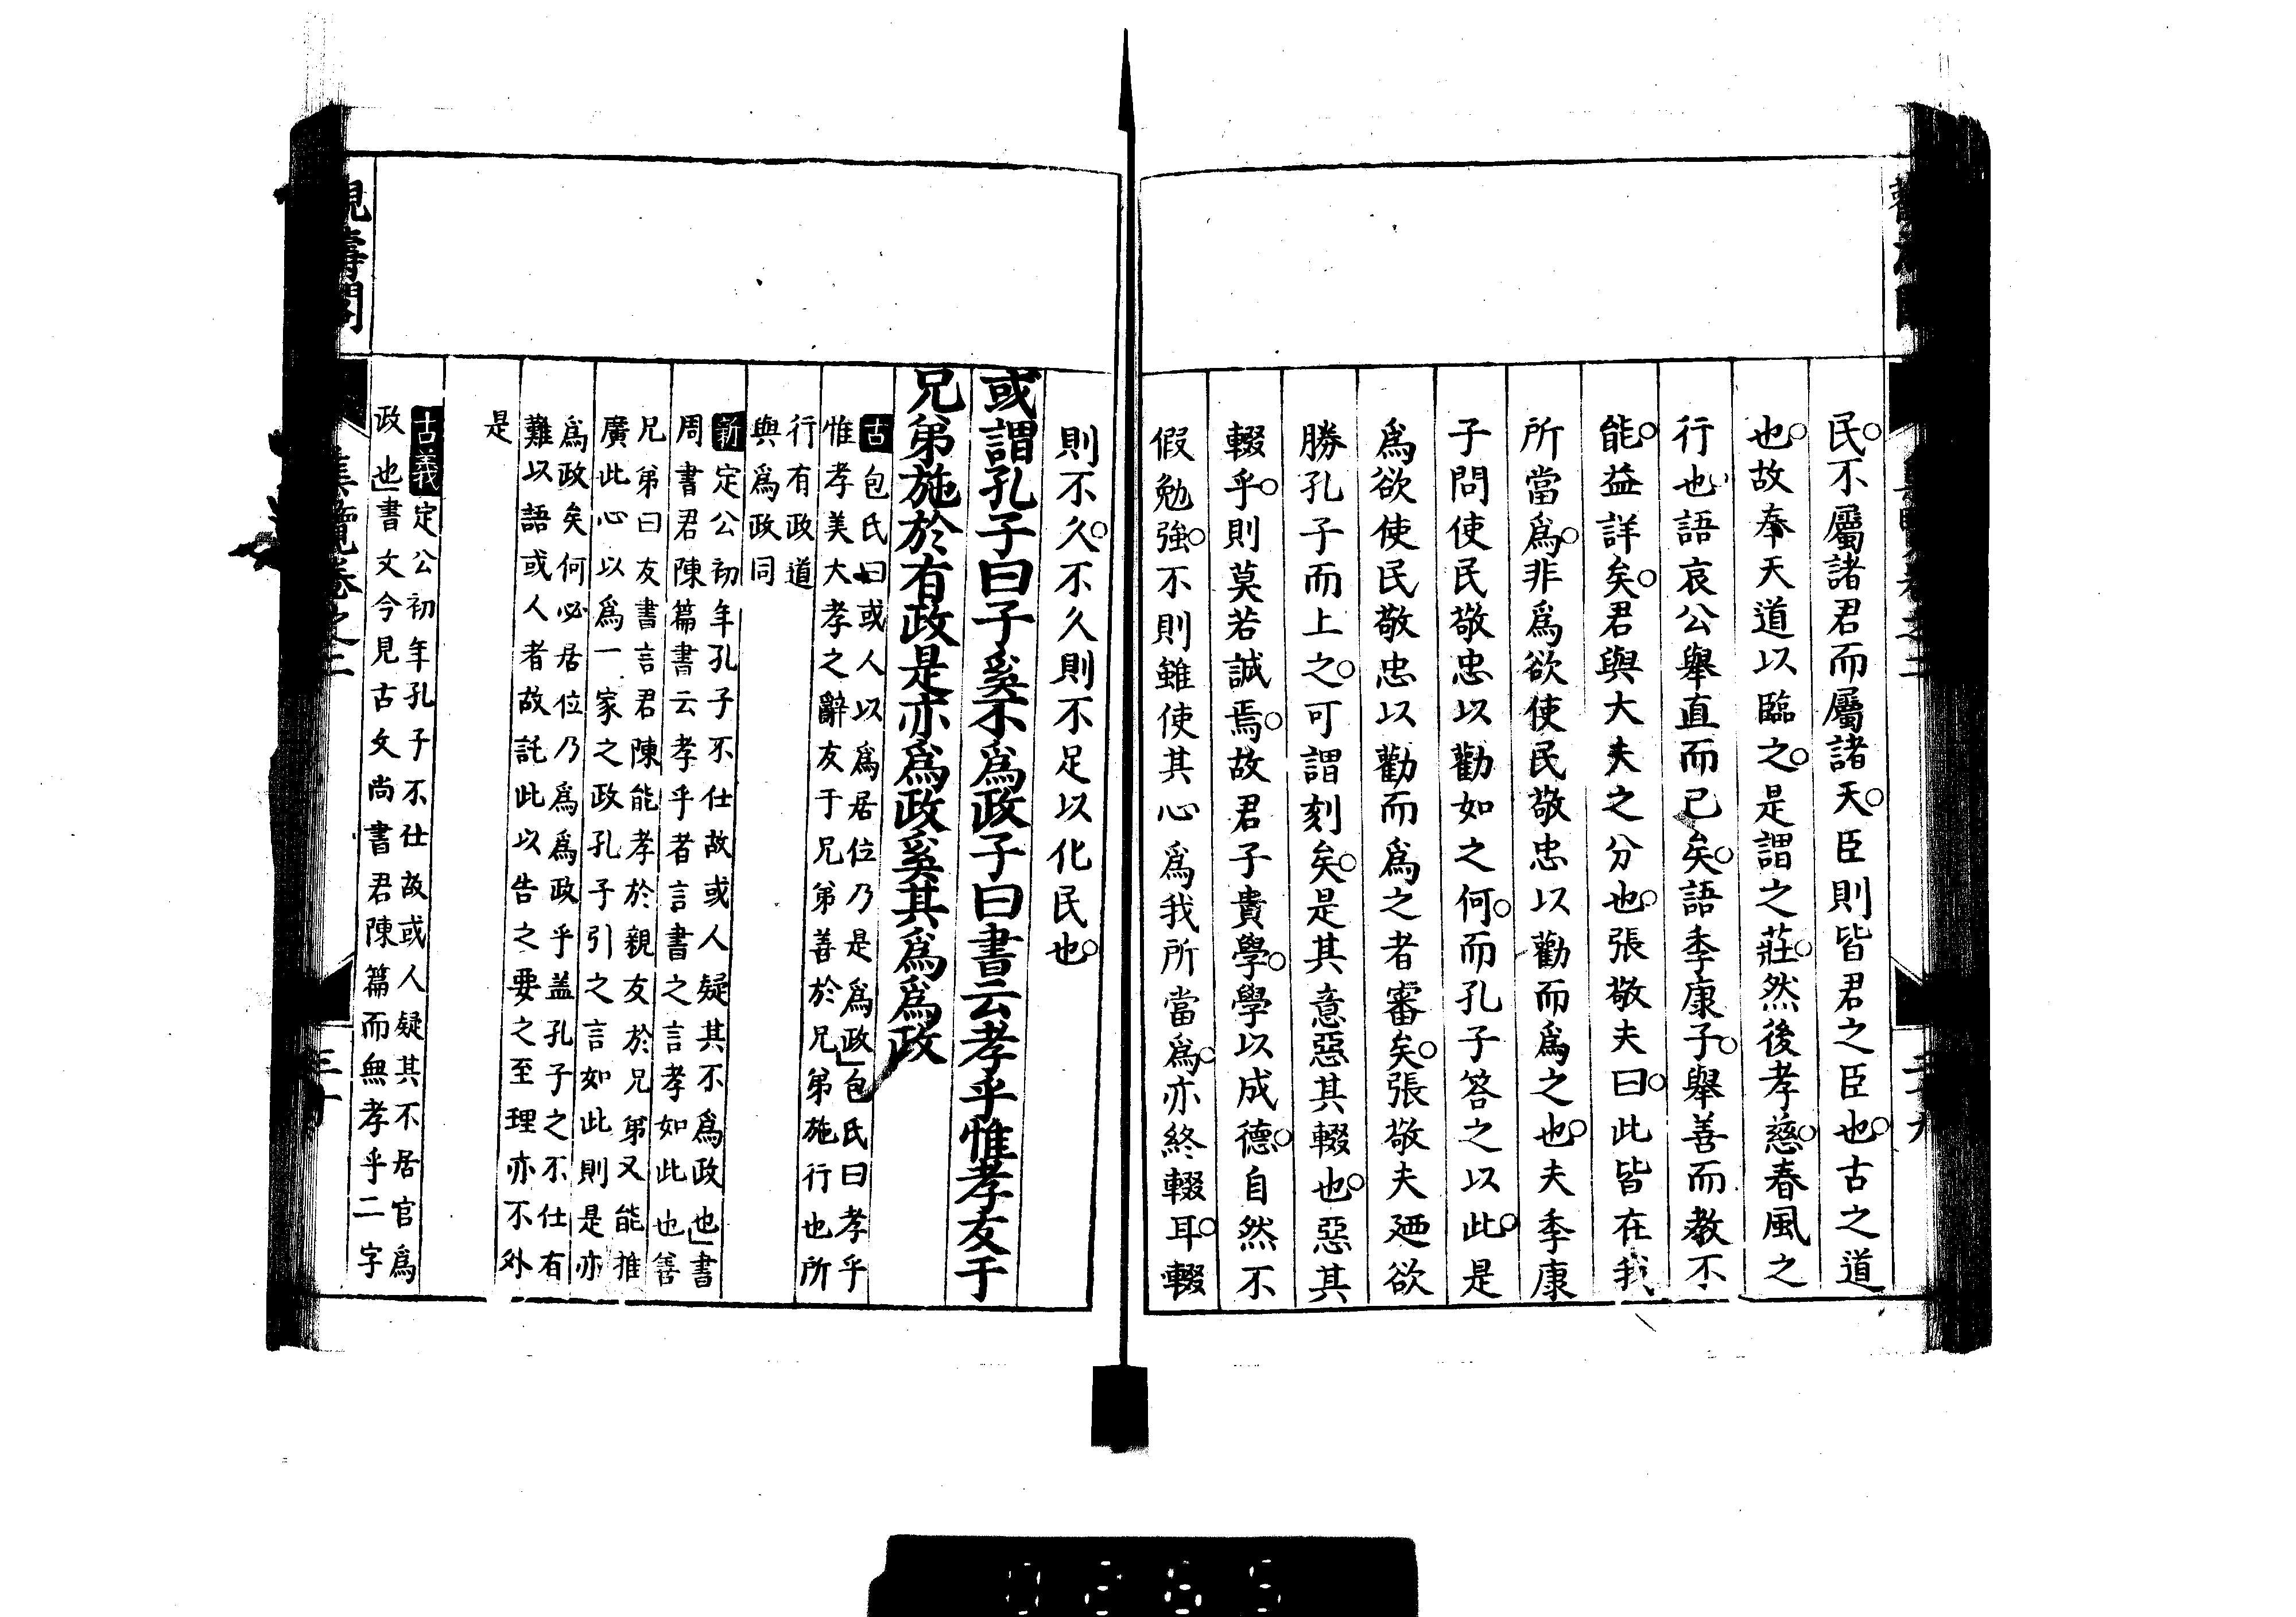 民不屬諸君而屬諸天臣則皆君之臣也古之道
也故奉天道以臨之是謂之莊然後孝慈春風之
行也語哀公舉直而已矣語季康子舉善而教不
能益詳矣君與大夫之分也張敬夫曰此皆在我
所當爲非爲欲使民敬忠以勸而爲之也夫季康
子問使民敬忠以勸如之何而孔子答之以此是
爲欲使民敬忠以勸而爲之者審矣張敬夫廼欲
勝孔子而上之可謂刻矣是其意惡其輟也惡其
輟乎則莫若誠焉故君子貴學學以成德自然不
假勉強不則雖使其心爲我所當爲亦終輟耳輟
則不久不久則不足以化民也
或謂孔子曰子奚不爲政子曰書云孝乎惟孝友于
兄弟施於有政是亦爲政奚其爲爲政
古包氏曰或人以爲居位乃是爲政包氏曰孝乎
惟孝美大孝之辭友于兄弟善於兄弟施行也所
行有政道
與爲政同
新定公初年孔子不仕故或人疑其不爲政也書
周書君陳篇書云孝乎者言書之言孝如此也善
兄弟曰友書言君陳能孝於親友於兄弟又能推
廣此心以爲一家之政孔子引之言如此則是亦
爲政矣何必居位乃爲爲政乎盖孔子之不仕有
難以語或人者故託此以告之要之至理亦不外
是
古義定公初年孔子不仕故或人疑其不居官爲
政也書文今見古文尚書君陳篇而無孝乎二字
集覽卷之二